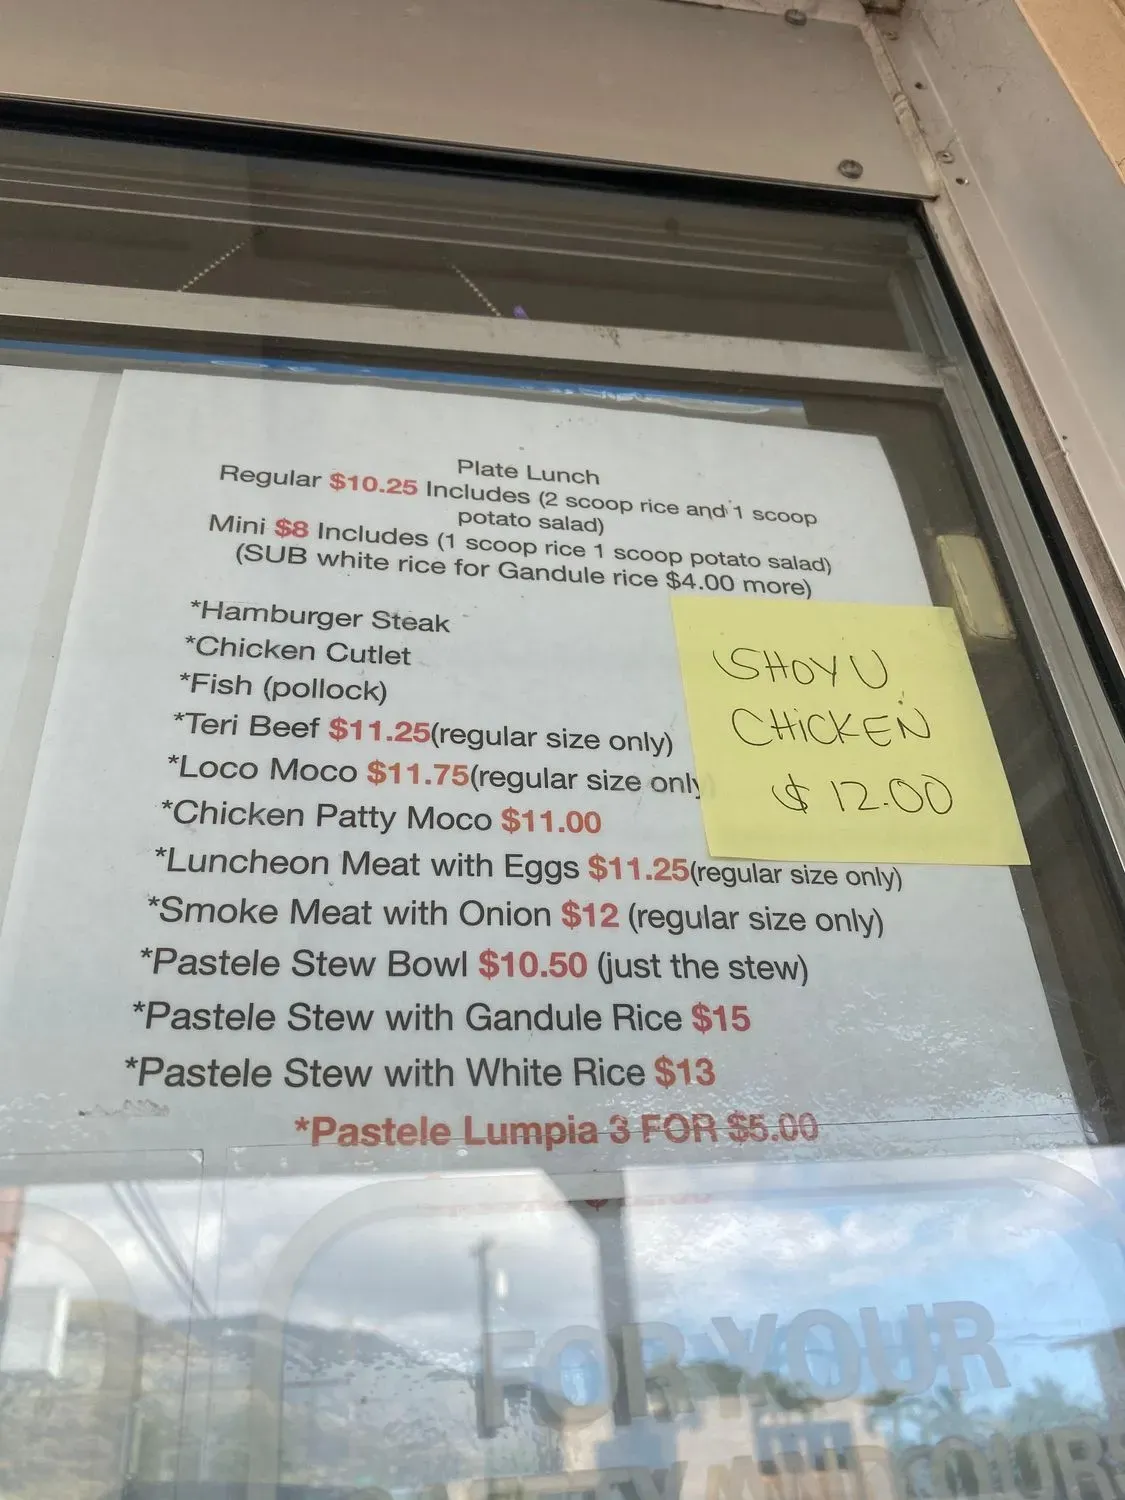 Plate Lunch
Regular $10.25 Includes (2 scoop rice and 1 scoop
potato salad)
Mini $8 Includes (1 scoop rice 1 scoop potato salad)
(SUB white rice for Gandule rice $4.00 more)
*Hamburger Steak
*Chicken Cutlet
*Fish (pollock)
*Teri Beef $11.25(regular size only)
*Loco Moco $11.75(regular size only
*Chicken Patty Moco $11.00
*Luncheon Meat with Eggs $11.25(regular size only)
*Smoke Meat with Onion $12 (regular size only)
*Pastele Stew Bowl $10.50 (just the stew)
*Pastele Stew with Gandule Rice $15
*Pastele Stew with White Rice $13
*Pastele Lumpia 3 FOR $5.00
SHOYU
CHICKEN
$12.00
FOR YOUR
AND OURS